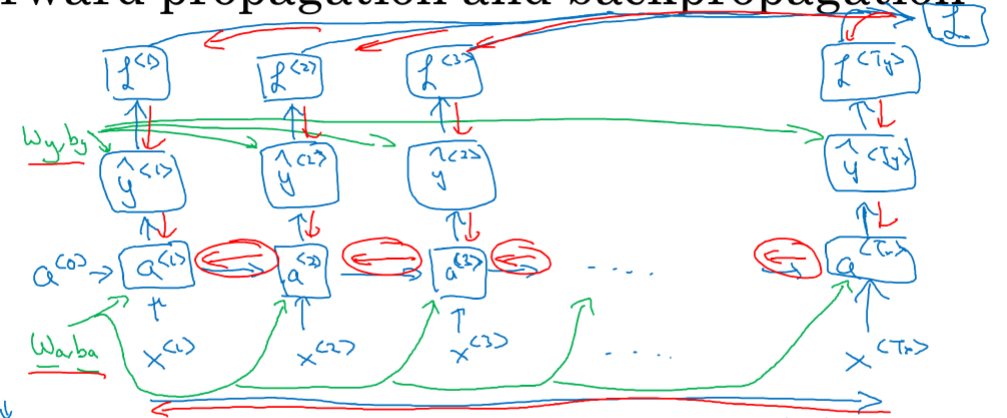 rward propagation and backpropagation
L
L<1> L<2> L<3> L<Ty>
Wy,by
ŷ<1> ŷ<2> ŷ<2> ŷ<Ty>
a<0> a<1> a<2> a<3> .... a<Tx>
Wa,ba
x<1> x<2> x<3> .... x<Tx>